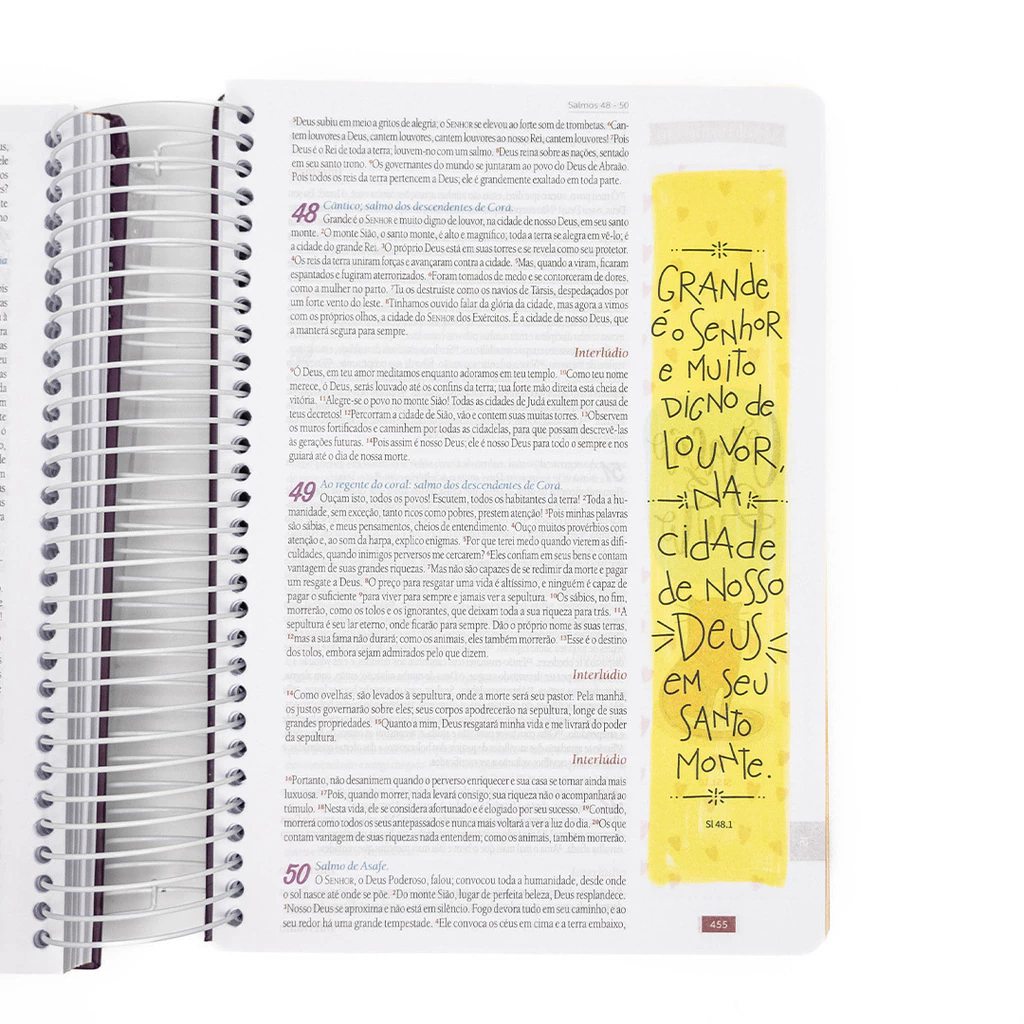 Salmos 48 – 50
⁵Deus subiu em meio a gritos de alegria; o SENHOR se elevou ao forte som de trombetas. ⁶Can-
tem louvores a Deus, cantem louvores, cantem louvores ao nosso Rei, cantem louvores! ⁷Pois
Deus é o Rei de toda a terra; louvem-no com um salmo. ⁸Deus reina sobre as nações, sentado
em seu santo trono. ⁹Os governantes do mundo se juntaram ao povo do Deus de Abraão.
Pois todos os reis da terra pertencem a Deus; ele é grandemente exaltado em toda parte.
48 Cântico; salmo dos descendentes de Corá.
Grande é o SENHOR e muito digno de louvor, na cidade de nosso Deus, em seu santo
monte. ²O monte Sião, o santo monte, é alto e magnífico; toda a terra se alegra em vê-lo; é
a cidade do grande Rei. ³O próprio Deus está em suas torres e se revela como seu protetor.
⁴Os reis da terra uniram forças e avançaram contra a cidade. ⁵Mas, quando a viram, ficaram
espantados e fugiram aterrorizados. ⁶Foram tomados de medo e se contorceram de dores,
como a mulher no parto. ⁷Tu os destruíste como os navios de Társis, despedaçados por
um forte vento do leste. ⁸Tínhamos ouvido falar da glória da cidade, mas agora a vimos
com os próprios olhos, a cidade do SENHOR dos Exércitos. É a cidade de nosso Deus, que
a manterá segura para sempre.
Interlúdio
⁹Ó Deus, em teu amor meditamos enquanto adoramos em teu templo. ¹⁰Como teu nome
merece, ó Deus, serás louvado até os confins da terra; tua forte mão direita está cheia de
vitória. ¹¹Alegre-se o povo no monte Sião! Todas as cidades de Judá exultem por causa de
teus decretos! ¹²Percorram a cidade de Sião, vão e contem suas muitas torres. ¹³Observem
os muros fortificados e caminhem por todas as cidadelas, para que possam descrevê-las
às gerações futuras. ¹⁴Pois assim é nosso Deus; ele é nosso Deus para todo o sempre e nos
guiará até o dia de nossa morte.
49 Ao regente do coral: salmo dos descendentes de Corá.
Ouçam isto, todos os povos! Escutem, todos os habitantes da terra! ²Toda a hu-
manidade, sem exceção, tanto ricos como pobres, prestem atenção! ³Pois minhas palavras
são sábias, e meus pensamentos, cheios de entendimento. ⁴Ouço muitos provérbios com
atenção e, ao som da harpa, explico enigmas. ⁵Por que terei medo quando vierem as difi-
culdades, quando inimigos perversos me cercarem? ⁶Eles confiam em seus bens e contam
vantagem de suas grandes riquezas. ⁷Mas não são capazes de se redimir da morte e pagar
um resgate a Deus. ⁸O preço para resgatar uma vida é altíssimo, e ninguém é capaz de
pagar o suficiente ⁹para viver para sempre e jamais ver a sepultura. ¹⁰Os sábios, no fim,
morrerão, como os tolos e os ignorantes, que deixam toda a sua riqueza para trás. ¹¹A
sepultura é seu lar eterno, onde ficarão para sempre. Dão o próprio nome às suas terras,
¹²mas a sua fama não durará; como os animais, eles também morrerão. ¹³Esse é o destino
dos tolos, embora sejam admirados pelo que dizem.
Interlúdio
¹⁴Como ovelhas, são levados à sepultura, onde a morte será seu pastor. Pela manhã,
os justos governarão sobre eles; seus corpos apodrecerão na sepultura, longe de suas
grandes propriedades. ¹⁵Quanto a mim, Deus resgatará minha vida e me livrará do poder
da sepultura.
Interlúdio
¹⁶Portanto, não desanimem quando o perverso enriquecer e sua casa se tornar ainda mais
luxuosa. ¹⁷Pois, quando morrer, nada levará consigo; sua riqueza não o acompanhará ao
túmulo. ¹⁸Nesta vida, ele se considera afortunado e é elogiado por seu sucesso. ¹⁹Contudo,
morrerá como todos os seus antepassados e nunca mais voltará a ver a luz do dia. ²⁰Os que
contam vantagem de suas riquezas nada entendem; como os animais, também morrerão.
50 Salmo de Asafe.
O SENHOR, o Deus Poderoso, falou; convocou toda a humanidade, desde onde
o sol nasce até onde se põe. ²Do monte Sião, lugar de perfeita beleza, Deus resplandece.
³Nosso Deus se aproxima e não está em silêncio. Fogo devora tudo em seu caminho, e ao
seu redor há uma grande tempestade. ⁴Ele convoca os céus em cima e a terra embaixo,
GRANDE
é o SENHOR
e MUITO
DIGNO de
LOUVOR,
NA
cidade
de NOSSO
DEUS
EM SEU
SANTO
MONTE.
Sl 48.1
455